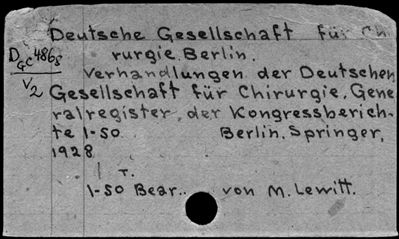 Deutsche Gesellschaft für Chi
rurgie. Berlin.
DGC 486s
V2
Verhandlungen der Deutschen
Gesellschaft für Chirurgie. Gene
ralregister, der Kongressberich-
te 1-50. Berlin, Springer,
1928
T.
1-50 Bear.. von M. Lewitt.